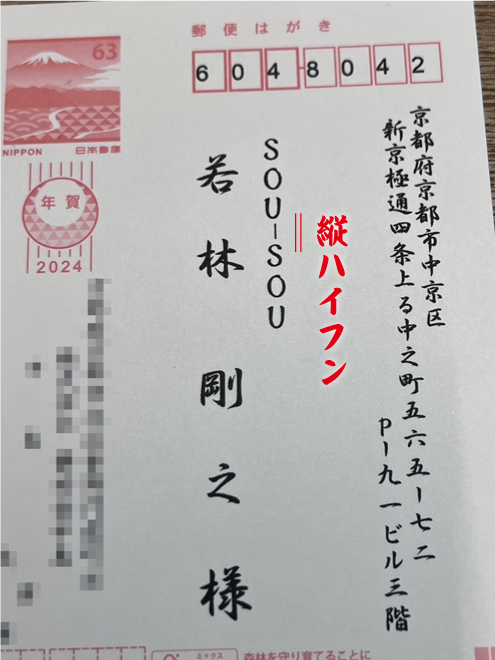 郵便はがき
63
6048042
NIPPON 日本郵便
年賀
2024
京都府京都市中京区
新京極通四条上る中之町五六五ー七二
Pー九一ビル三階
縦ハイフン
SOU-SOU
若林剛之様
ミックス
森林を守り育てることに